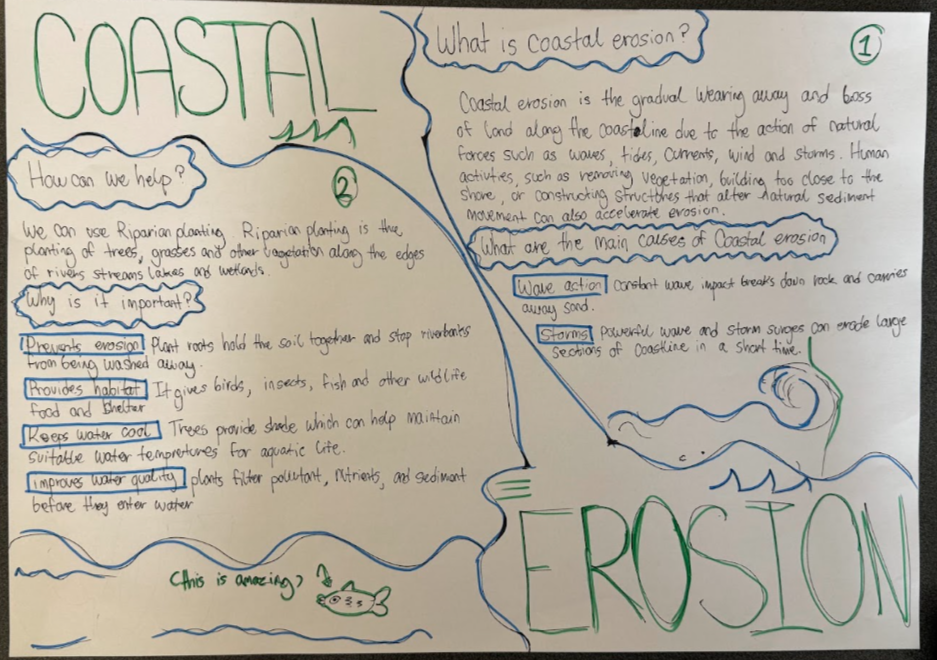 COASTAL
EROSION
What is Coastal erosion?
1
Coastal erosion is the gradual wearing away and loss
of land along the coastline due to the action of natural
forces such as waves, tides, currents, wind and storms. Human
activties, such as removing vegetation, building too close to the
shore, or constructing structures that alter natural sediment
movement can also accelerate erosion.
What are the main causes of Coastal erosion
Wave action Constant wave impact breaks down rock and carries
away sand.
Storms powerful wave and storm surges can erode large
sections of coastline in a short time.
How can we help?
2
We can use Riparian planting. Riparian planting is the
planting of trees, grasses and other vagetation along the edges
of rivers streams lakes and wetlands.
Why is it important?
Prevents erosion Plant roots hold the soil together and stop riverbanks
from being washed away.
Provides habitat It gives birds, insects, fish and other wildlife
food and shelter
Keeps water cool Trees provide shade which can help maintain
suitable water tempretures for aquatic life.
improves water quality plants filter pollutant, nutrients, and sediment
before they enter water
(this is amazing?